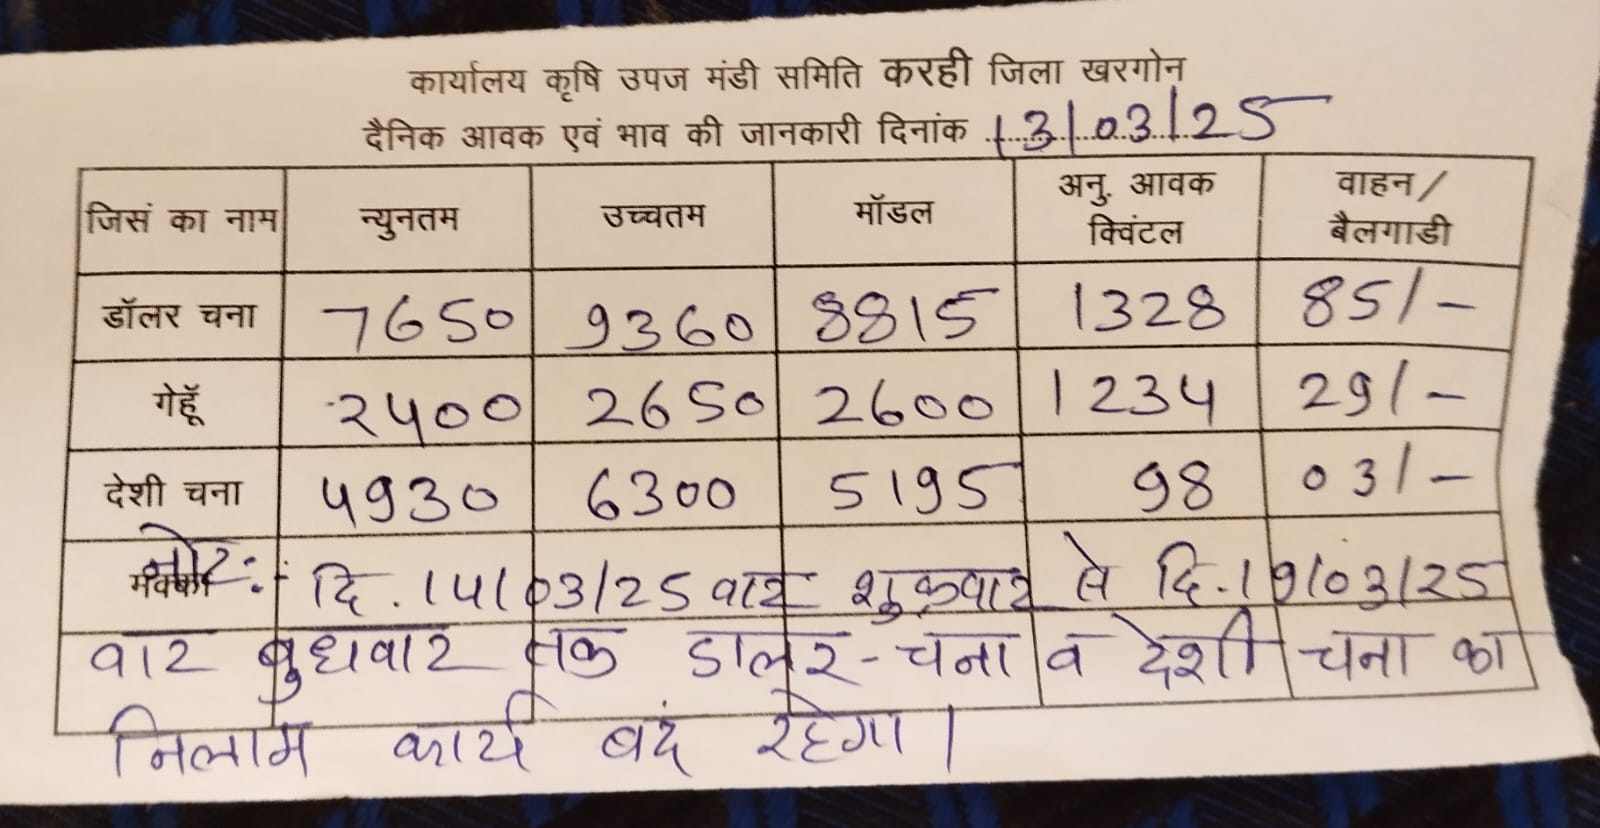 कार्यालय कृषि उपज मंडी समिति करही जिला खरगोन
दैनिक आवक एवं भाव की जानकारी दिनांक 13/03/25
जिसं का नाम न्युनतम उच्चतम मॉडल अनु. आवक क्विंटल वाहन/ बैलगाडी
डॉलर चना 7650 9360 8815 1328 85/-
गेहूँ 2400 2650 2600 1234 29/-
देशी चना 4930 6300 5195 98 03/-
मक्का
नोट:- दि. 14/03/25 वार शुक्रवार से दि. 19/03/25
वार बुधवार तक डालर-चना व देशी चना का
निलाम कार्य बदं रहेगा।